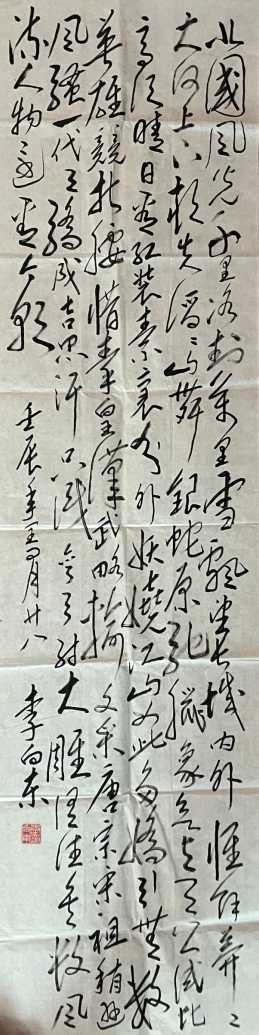 北國风光千里冰封萬里雪飄望長城内外惟餘莽〻
大河上下頓失滔〻山舞銀蛇原馳臘象欲与天公試比
高須晴日看紅裝素裹分外妖嬈江山如此多嬌引無數
英雄競折腰惜秦皇漢武略輸文采唐宗宋祖稍遜
风騷一代天驕成吉思汗只識彎弓射大雕俱往矣數风
流人物還看今朝
壬辰年五月廿八 李向东